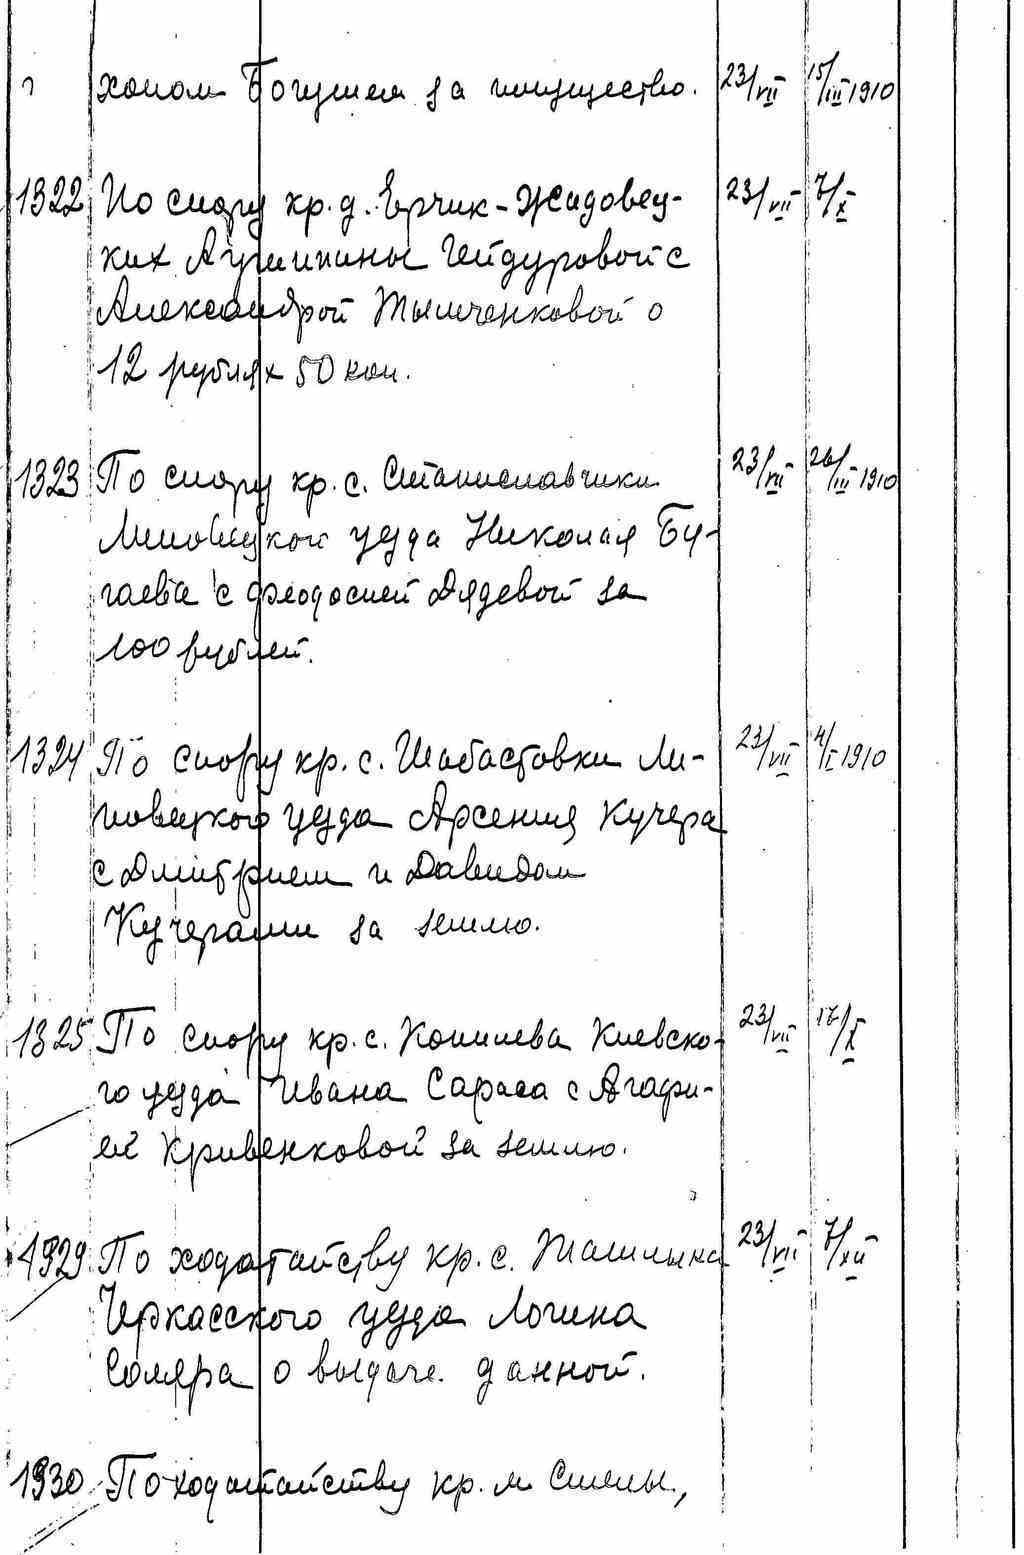 хоном Богушем за имущество. 23/VII 15/III 1910
1322 По спору кр. д. Ерчик-Жидовец- 23/VII 7/X
ких Агрипины Гейдуровой с
Александрой Тымченковой о
12 рублях 50 коп.
1323 По спору кр. с. Станиславчики 23/VII 26/III 1910
Липовецкого уезда Николая Бу-
гаева с Феодосией Дядевой за
100 рублей.
1324 По спору кр. с. Шабастовки Ли- 23/VII 4/I 1910
повецкого уезда Арсения Кучера
с Дмитрием и Давидом
Кучерами за землю.
1325 По спору кр. с. Копилева Киевско- 23/VII 17/X
го уезда Ивана Сараса с Агафи-
ей Кривенковой за землю.
1929 По ходатайству кр. с. Ташлыка 23/VII 7/XII
Черкасского уезда Логина
Соляра о выдаче данной.
1930 По ходатайству кр. м. Смелы,